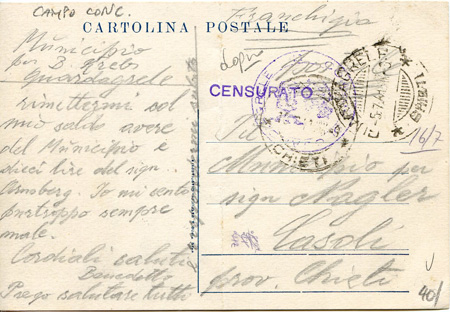 CAMPO CONC.
CARTOLINA POSTALE
Franchigia
CENSURATO
GUARDIAGRELE
CHIETI
16/7
Municipio
per B.
Guardiagrele
rimettermi sol
mio saldo avere
del Municipio e
dieci lire del sign.
Arnsberg. Io mi sento
purtroppo sempre
male.
Cordiali saluti
Benedetto
Prego salutare tutti
Municipio per
sign Nagler
Casoli
prov. Chieti
40/